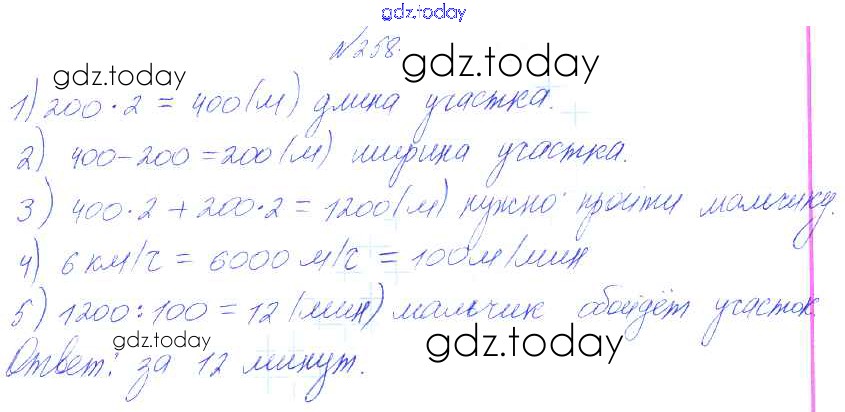 gdz.today
№258.
gdz.today gdz.today
1) 200·2 = 400(м) длина участка.
2) 400-200=200(м) ширина участка.
gdz.today gdz.today
3) 400·2+200·2=1200(м) нужно пройти мальчику.
4) 6 км/ч = 6000 м/ч = 100м/мин
5) 1200:100=12 (мин) мальчик обойдёт участок
gdz.today gdz.today
Ответ: за 12 минут.